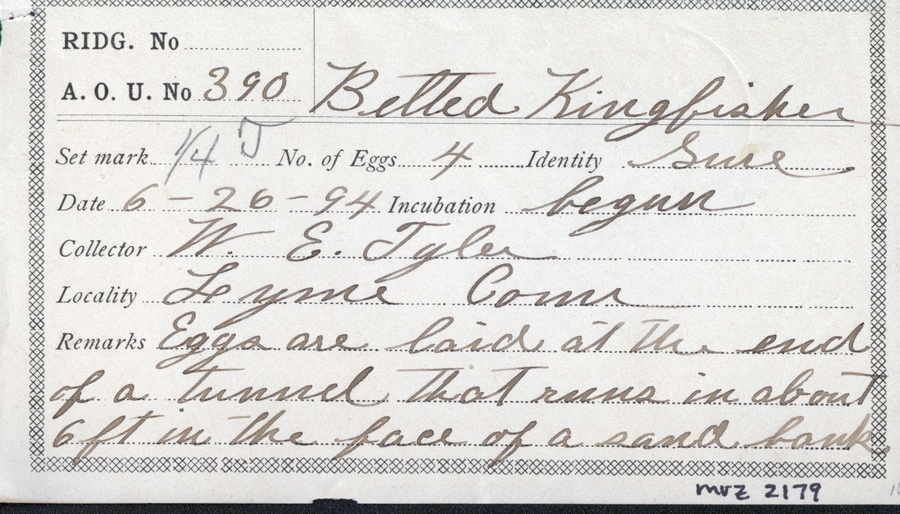 RIDG. No
A. O. U. No 390 Belted Kingfisher
Set mark 1/4 J No. of Eggs 4 Identity Sure
Date 6 - 26 - 94 Incubation begun
Collector W. E. Tyler
Locality Lyme Conn
Remarks Eggs are laid at the end
of a tunnel that runs in about
6 ft in the face of a sand bank.
mvz 2179